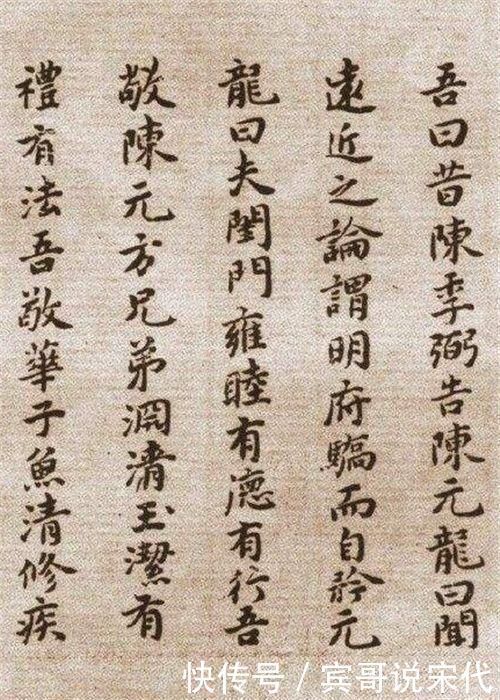 吾曰昔陳季弼告陳元龍曰聞
遠近之論謂明府驕而自矜元
龍曰夫閨門雍睦有德有行吾
敬陳元方兄弟淵清玉潔有
禮有法吾敬華子魚清修疾
快传号 / 宾哥说宋代